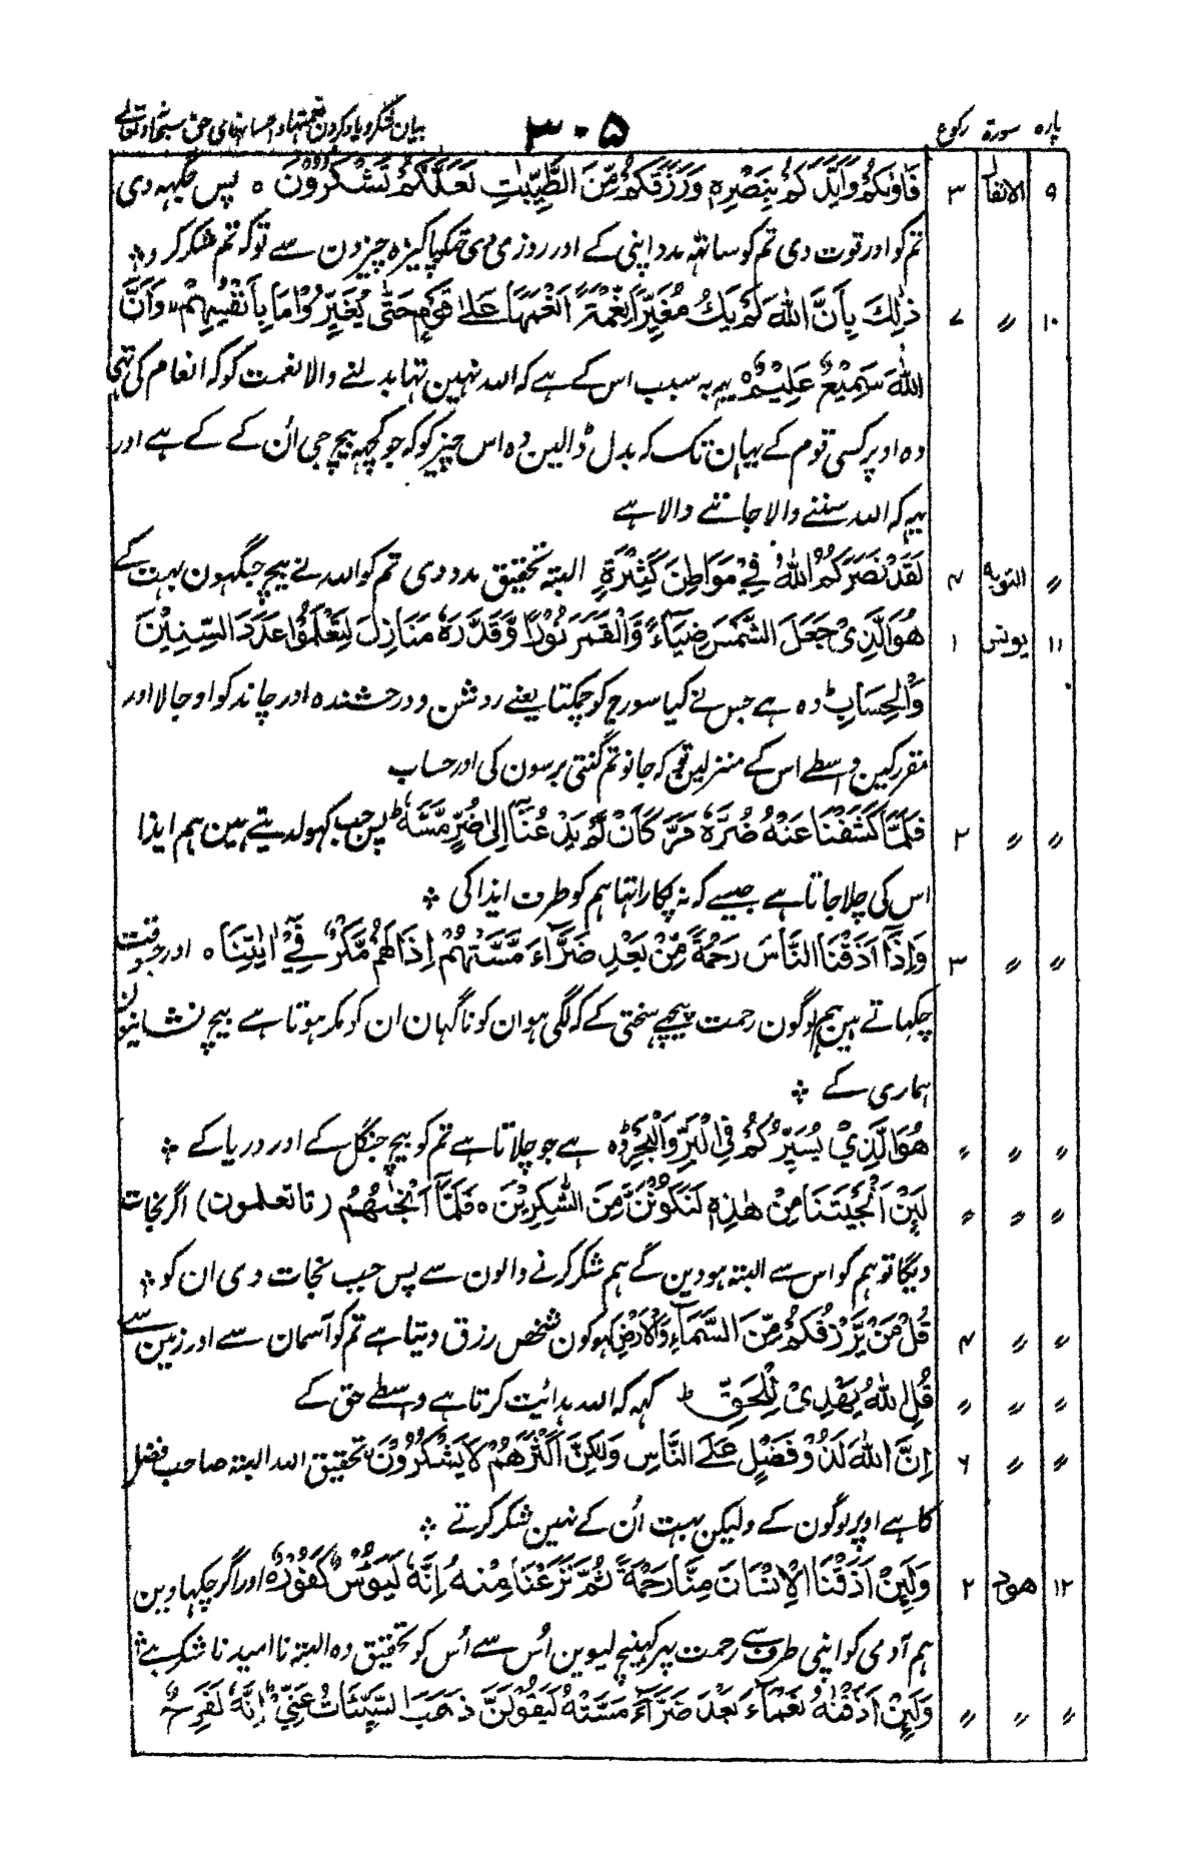 پارہ سورۃ رکوع ۳۰۵ بیان شکر و یاد کردن نعمتہا و احسانہای حق سبحانہ و تعالے
۹ الانفال ۳ فَاٰوٰىكُمْ وَاَيَّدَكُمْ بِنَصْرِهٖ وَرَزَقَكُمْ مِّنَ الطَّيِّبٰتِ لَعَلَّكُمْ تَشْكُرُوْنَ ٥ پس جگہہ دی
تم کو اور قوت دی تم کو ساتہہ مدد اپنی کے اور روزی دی تمکو پاکیزہ چیزون سے تو کہ تم شکر کرو
۱۰〃 ۷ ذٰلِكَ بِاَنَّ اللّٰهَ لَمْ يَكُ مُغَيِّرًا نِّعْمَةً اَنْعَمَهَا عَلٰى قَوْمٍ حَتّٰى يُغَيِّرُوْا مَا بِاَنْفُسِهِمْ وَاَنَّ
اللّٰهَ سَمِيْعٌ عَلِيْمٌ ٥ یہہ بہ سبب اس کے ہے کہ اللہ نہین تہا بدلنے والا نعمت کو کہ انعام کی تہی
وہ اوپر کسی قوم کے یہان تک کہ بدل ڈالین وہ اس چیز کو کہ جو کچہہ بیچ جی ان کے کے ہے اور
یہہ کہ اللہ سننے والا جاننے والا ہے
〃 التوبہ ۴ لَقَدْ نَصَرَكُمُ اللّٰهُ فِيْ مَوَاطِنَ كَثِيْرَةٍ البتہ تحقیق مدد دی تم کو اللہ نے بیچ جگہون بہت کے
۱۱ یونس ۱ هُوَ الَّذِيْ جَعَلَ الشَّمْسَ ضِيَآءً وَّالْقَمَرَ نُوْرًا وَّقَدَّرَهٗ مَنَازِلَ لِتَعْلَمُوْا عَدَدَ السِّنِيْنَ
وَالْحِسَابَ ط وہ ہے جس نے کیا سورج کو چمکتا یعنے روشن و درخشندہ اور چاند کو اوجالا اور
مقرر کین واسطے اس کے منزلین تو کہ جانو تم گنتی برسون کی اور حساب
〃 〃 ۲ فَلَمَّا كَشَفْنَا عَنْهُ ضُرَّهٗ مَرَّ كَاَنْ لَّمْ يَدْعُنَآ اِلٰى ضُرٍّ مَّسَّهٗ ط پس جب کہولدیتے ہین ہم ایذا
اس کی چلا جاتا ہے جیسے کہ نہ پکارا تہا ہم کو طرف ایذا کی
〃 〃 ۳ وَاِذَآ اَذَقْنَا النَّاسَ رَحْمَةً مِّنْۢ بَعْدِ ضَرَّآءَ مَسَّتْهُمْ اِذَا لَهُمْ مَّكْرٌ فِيْٓ اٰيٰتِنَا ٥ اور جسوقت
چکہاتے ہین ہم لوگون رحمت پیچھے سختی کے کہ لگی ہو ان کو ناگہان ان کو مکر ہوتا ہے بیچ نشانیون
ہماری کے
〃 〃 〃 هُوَ الَّذِيْ يُسَيِّرُكُمْ فِي الْبَرِّ وَالْبَحْرِ ط وہ ہے جو چلاتا ہے تم کو بیچ جنگل کے اور دریا کے
〃 〃 〃 لَئِنْ اَنْجَيْتَنَا مِنْ هٰذِهٖ لَنَكُوْنَنَّ مِنَ الشّٰكِرِيْنَ ٥ فَلَمَّآ اَنْجٰىهُمْ (تا تعلمون) اگر نجات
دیگا تو ہم کو اس سے البتہ ہووین گے ہم شکر کرنے والون سے پس جب نجات دی ان کو
〃 〃 ۴ قُلْ مَنْ يَّرْزُقُكُمْ مِّنَ السَّمَآءِ وَالْاَرْضِ کہو کون شخص رزق دیتا ہے تم کو آسمان سے اور زمین سے
〃 〃 〃 قُلِ اللّٰهُ يَهْدِيْ لِلْحَقِّ ط کہہ کہ اللہ ہدائیت کرتا ہے واسطے حق کے
〃 〃 ۶ اِنَّ اللّٰهَ لَذُوْ فَضْلٍ عَلَى النَّاسِ وَلٰكِنَّ اَكْثَرَهُمْ لَا يَشْكُرُوْنَ تحقیق اللہ البتہ صاحب فضل
کا ہے اوپر لوگون کے ولیکن بہت اُن کے نہین شکر کرتے
۱۲ ھود ۲ وَلَئِنْ اَذَقْنَا الْاِنْسَانَ مِنَّا رَحْمَةً ثُمَّ نَزَعْنٰهَا مِنْهُ اِنَّهٗ لَيَـُٔوْسٌ كَفُوْرٌ ٥ اور اگر چکہاوین
ہم آدمی کو اپنی طرف سے رحمت پہر کہینچ لیوین اُس سے اُس کو تحقیق وہ البتہ نا امید نا شکر ہے
〃 〃 〃 وَلَئِنْ اَذَقْنٰهُ نَعْمَآءَ بَعْدَ ضَرَّآءَ مَسَّتْهُ لَيَقُوْلَنَّ ذَهَبَ السَّيِّاٰتُ عَنِّيْ ط اِنَّهٗ لَفَرِحٌ